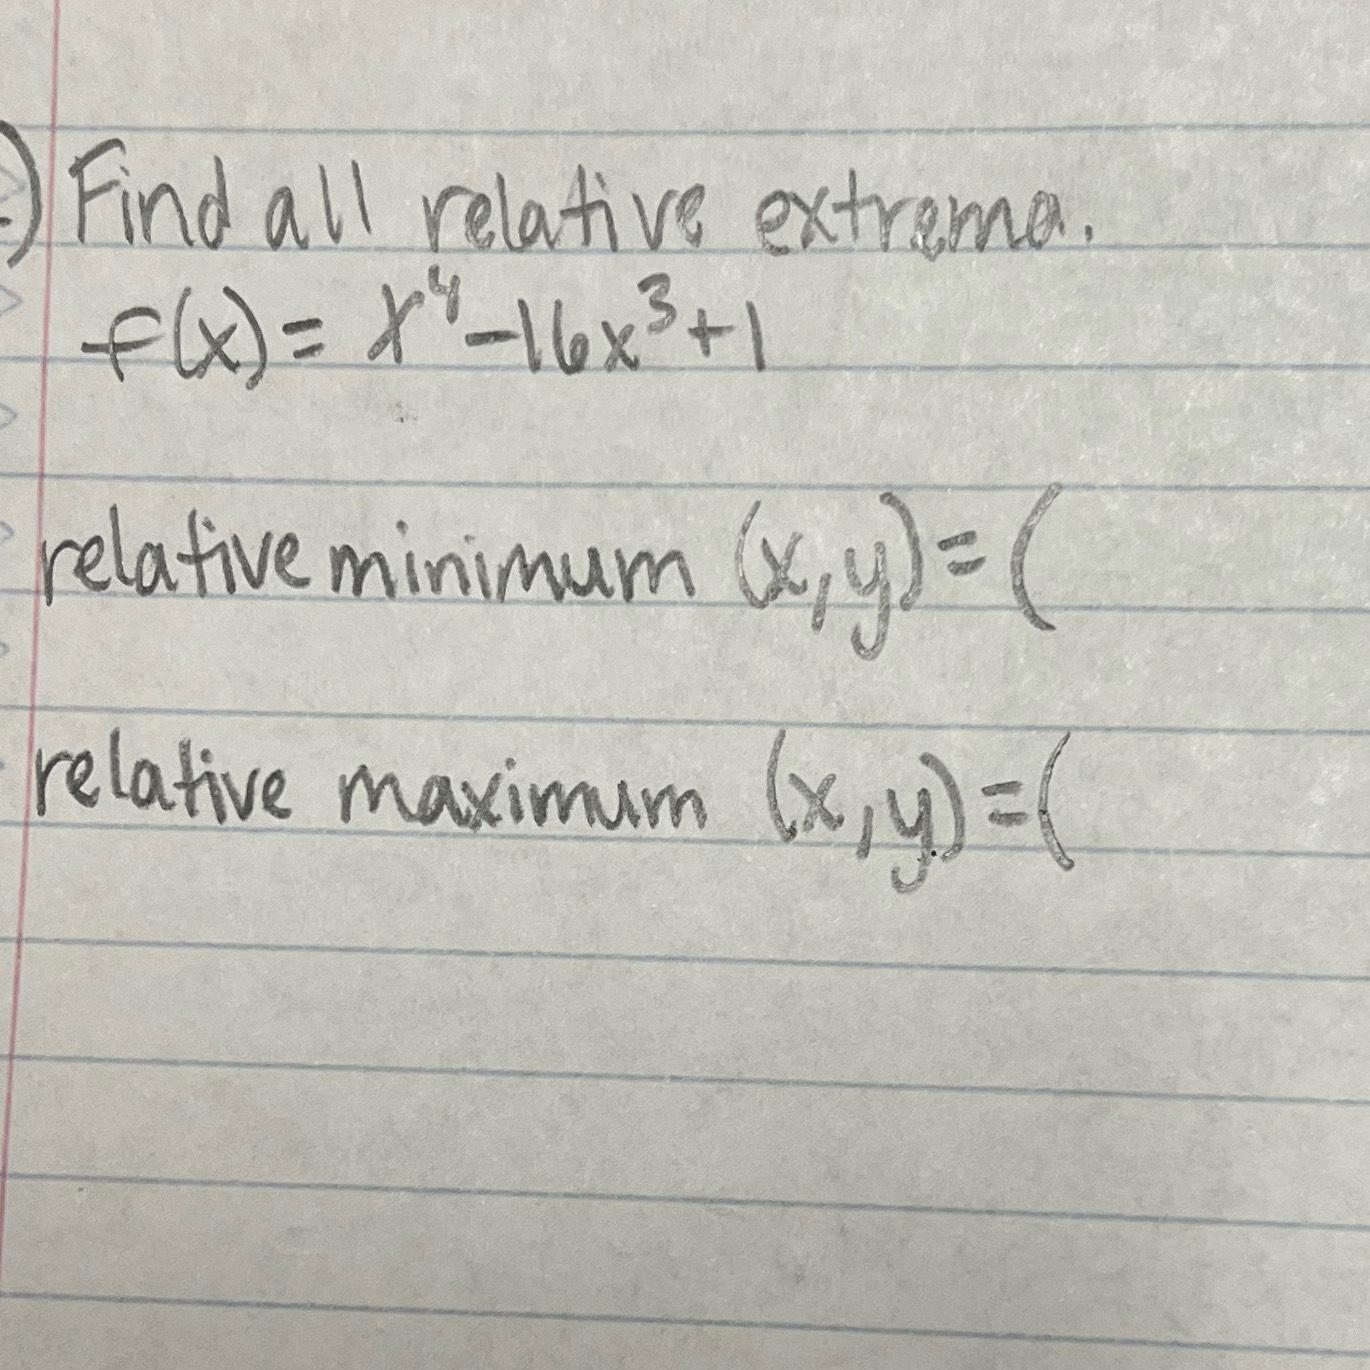 ) Find all relative extrema.
f(x) = x⁴ - 16x³ + 1
relative minimum (x,y) = (
relative maximum (x,y) = (